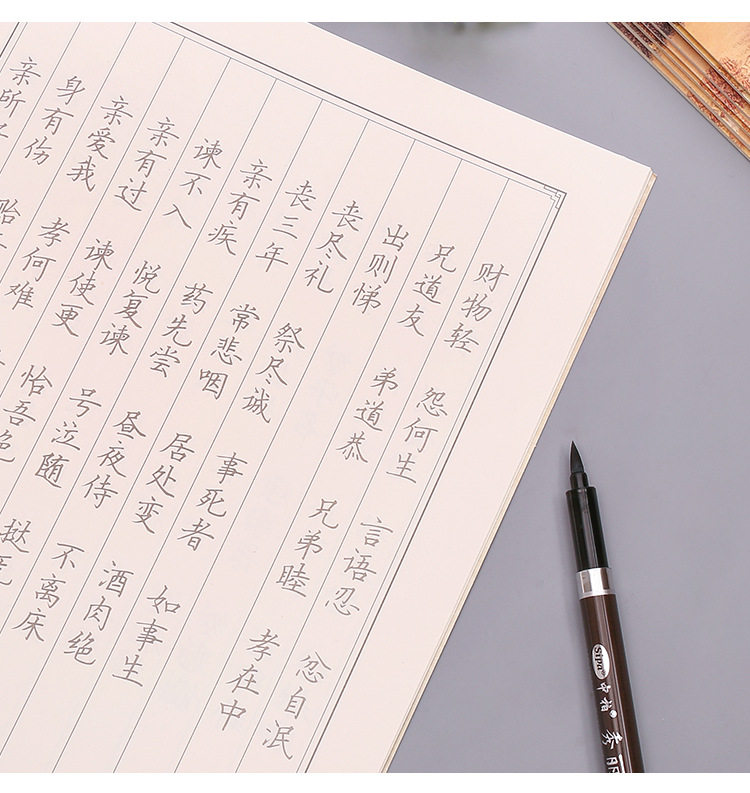 财物轻 怨何生 言语忍 忿自泯
兄道友 弟道恭 兄弟睦 孝在中
出则悌
丧尽礼 祭尽诚 事死者 如事生
丧三年 常悲咽 居处变 酒肉绝
亲有疾 药先尝 昼夜侍 不离床
谏不入 悦复谏 号泣随 挞
亲有过 谏使更 怡吾色
亲爱我 孝何难
身有伤 贻
亲所
Sipa 中柏® 秀丽